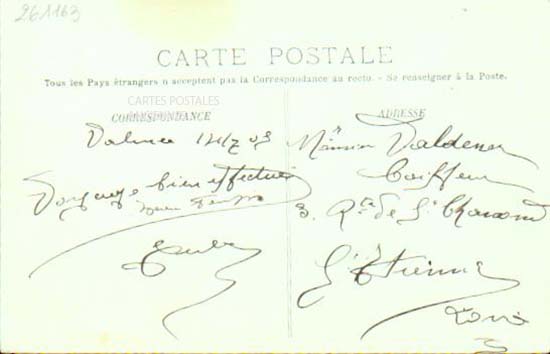 261163
CARTE POSTALE
Tous les Pays étrangers n'acceptent pas la Correspondance au recto. - Se renseigner à la Poste.
CARTES POSTALES
CORRESPONDANCE
ADRESSE
Valence
Monsieur Valdener
Coiffeur
Voyage bien effectué
3, Rte de St Chamond
St Etienne
Loire